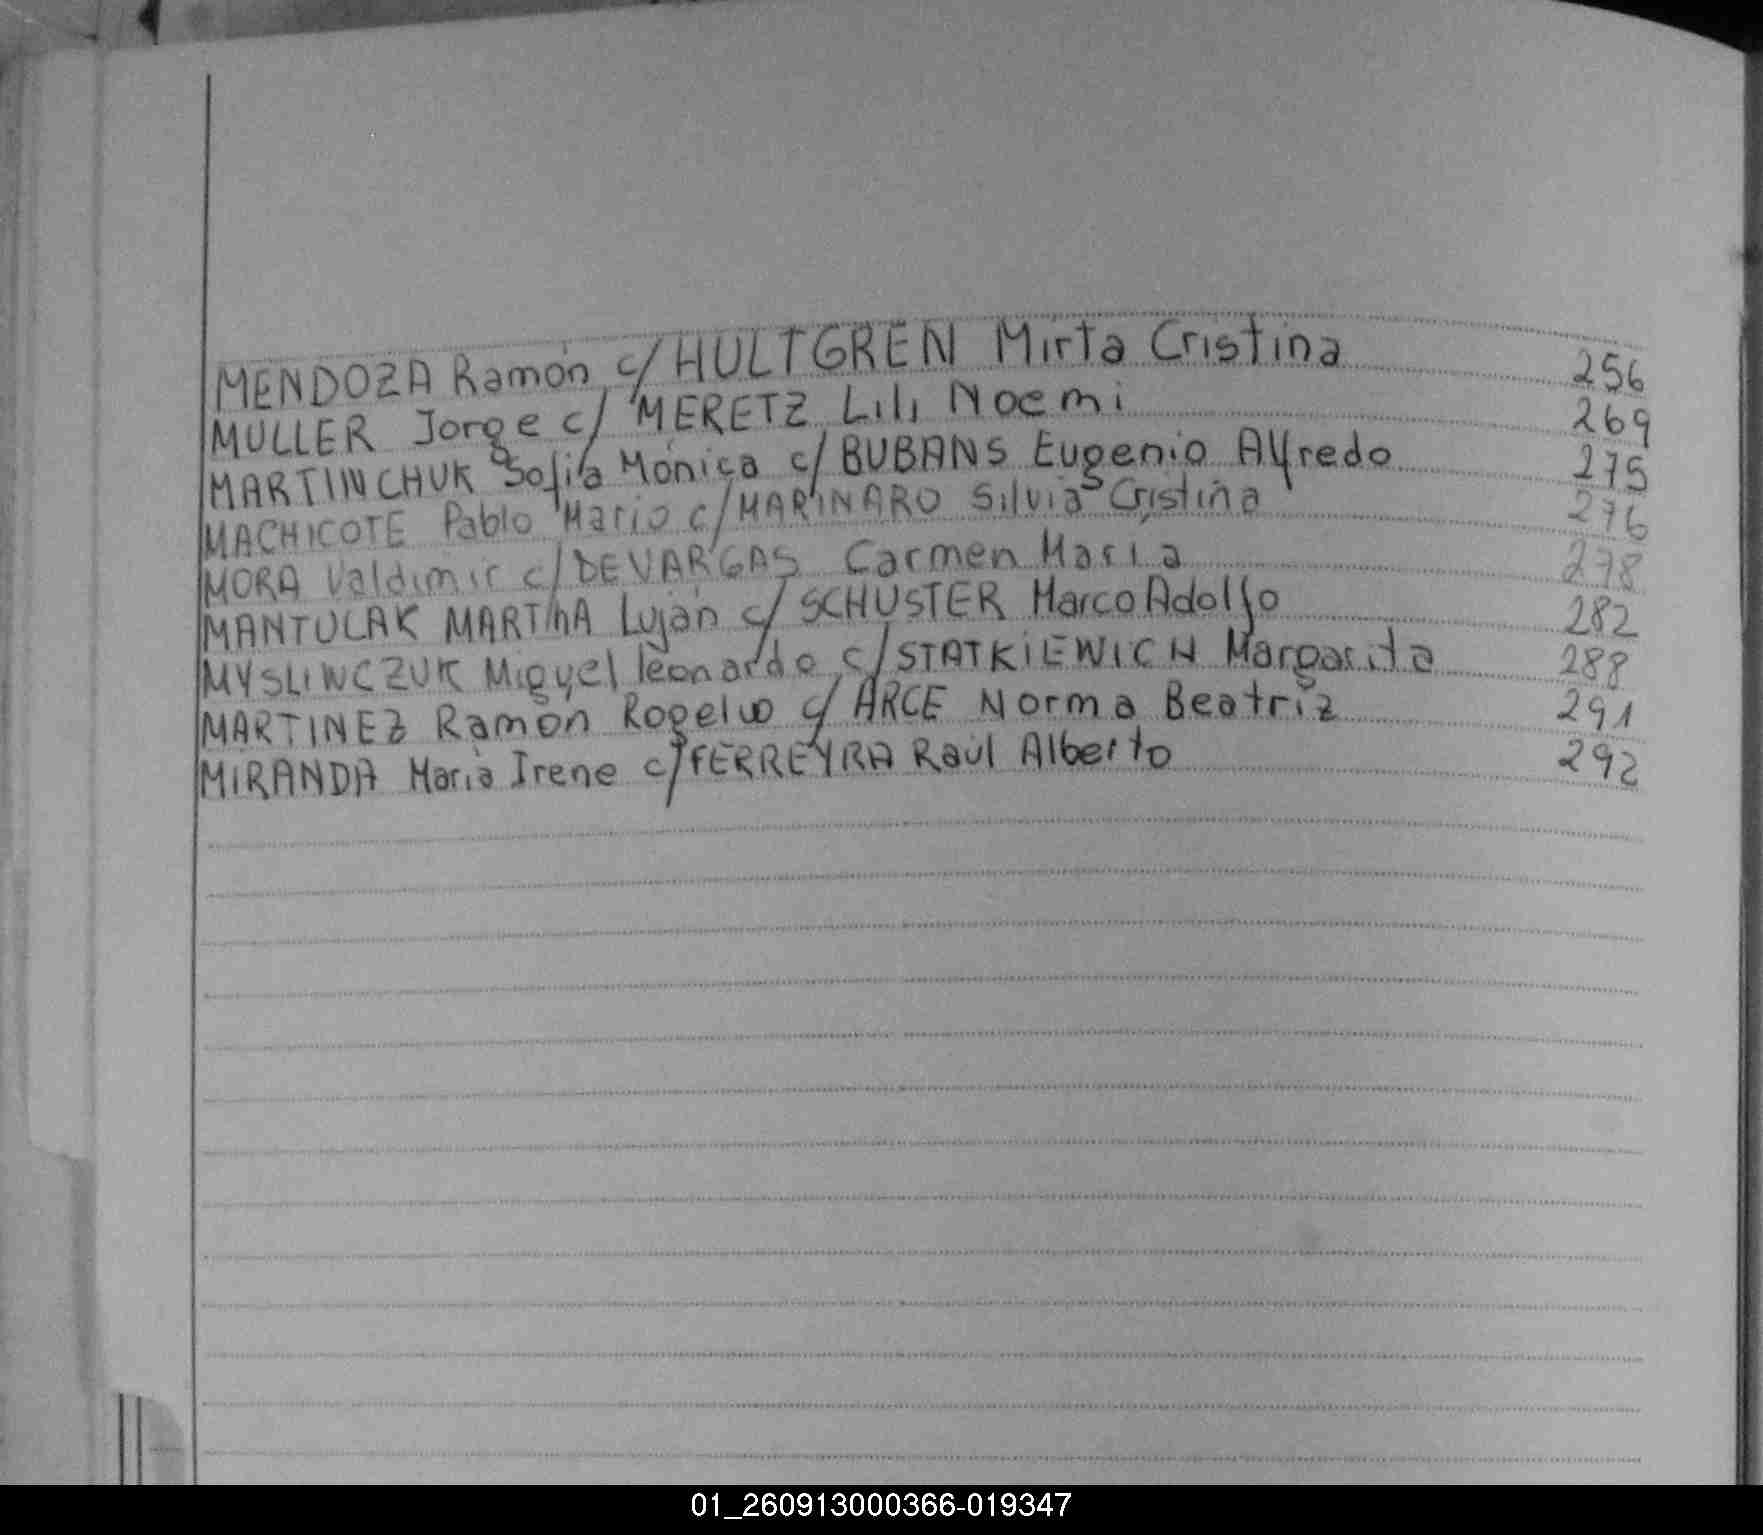 MENDOZA Ramón c/ HULTGREN Mirta Cristina 256
MULLER Jorge c/ MERETZ Lili Noemi 269
MARTINCHUK Sofia Mónica c/ BUBANS Eugenio Alfredo 275
MACHICOTE Pablo Mario c/ MARINARO Silvia Cristina 276
MORA Valdimir c/ DEVARGAS Carmen Maria 278
MANTULAK MARTINA Luján c/ SCHUSTER Marco Adolfo 282
MYSLIWCZUK Miguel leonardo c/ STATKIEWICH Margarita 288
MARTINEZ Ramón Rogelio c/ ARCE Norma Beatriz 291
MIRANDA Maria Irene c/ FERREYRA Raúl Alberto 292
01_260913000366-019347